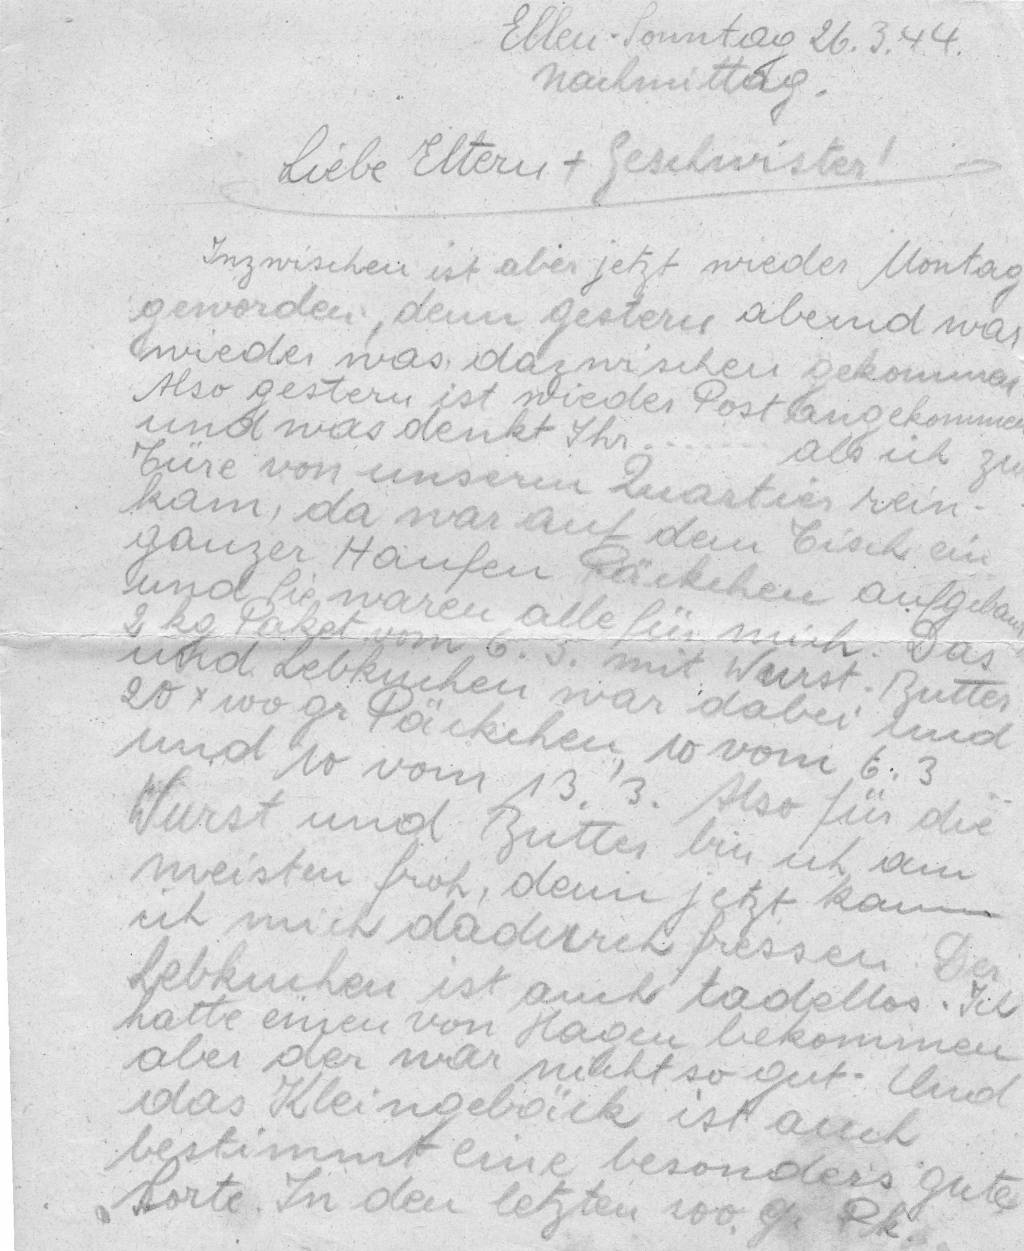 Ellen - Sonntag 26.3.44.
Nachmittag.
Liebe Eltern + Geschwister!
Inzwischen ist aber jetzt wieder Montag
geworden, denn gestern abend war
wieder was dazwischen gekommen.
Also gestern ist wieder Post angekommen
und was denkt Ihr ....... als ich zur
Türe von unserm Quartier rein-
kam, da war auf dem Tisch ein
ganzer Haufen Päckchen aufgebaut
und sie waren alle für mich. Das
2 kg Paket vom 6.3. mit Wurst - Butter
und Lebkuchen war dabei und
20 x 100 gr Päckchen, 10 vom 6.3
und 10 vom 13.3. Also für die
Wurst und Butter bin ich am
meisten froh, denn jetzt kann
ich mich dadurch fressen. Der
Lebkuchen ist auch tadellos. Ich
hatte einen von Hagen bekommen
aber der war nicht so gut. Und
das Kleingebäck ist auch
bestimmt eine besonders gute
Sorte. In den letzten 100 gr Pk.